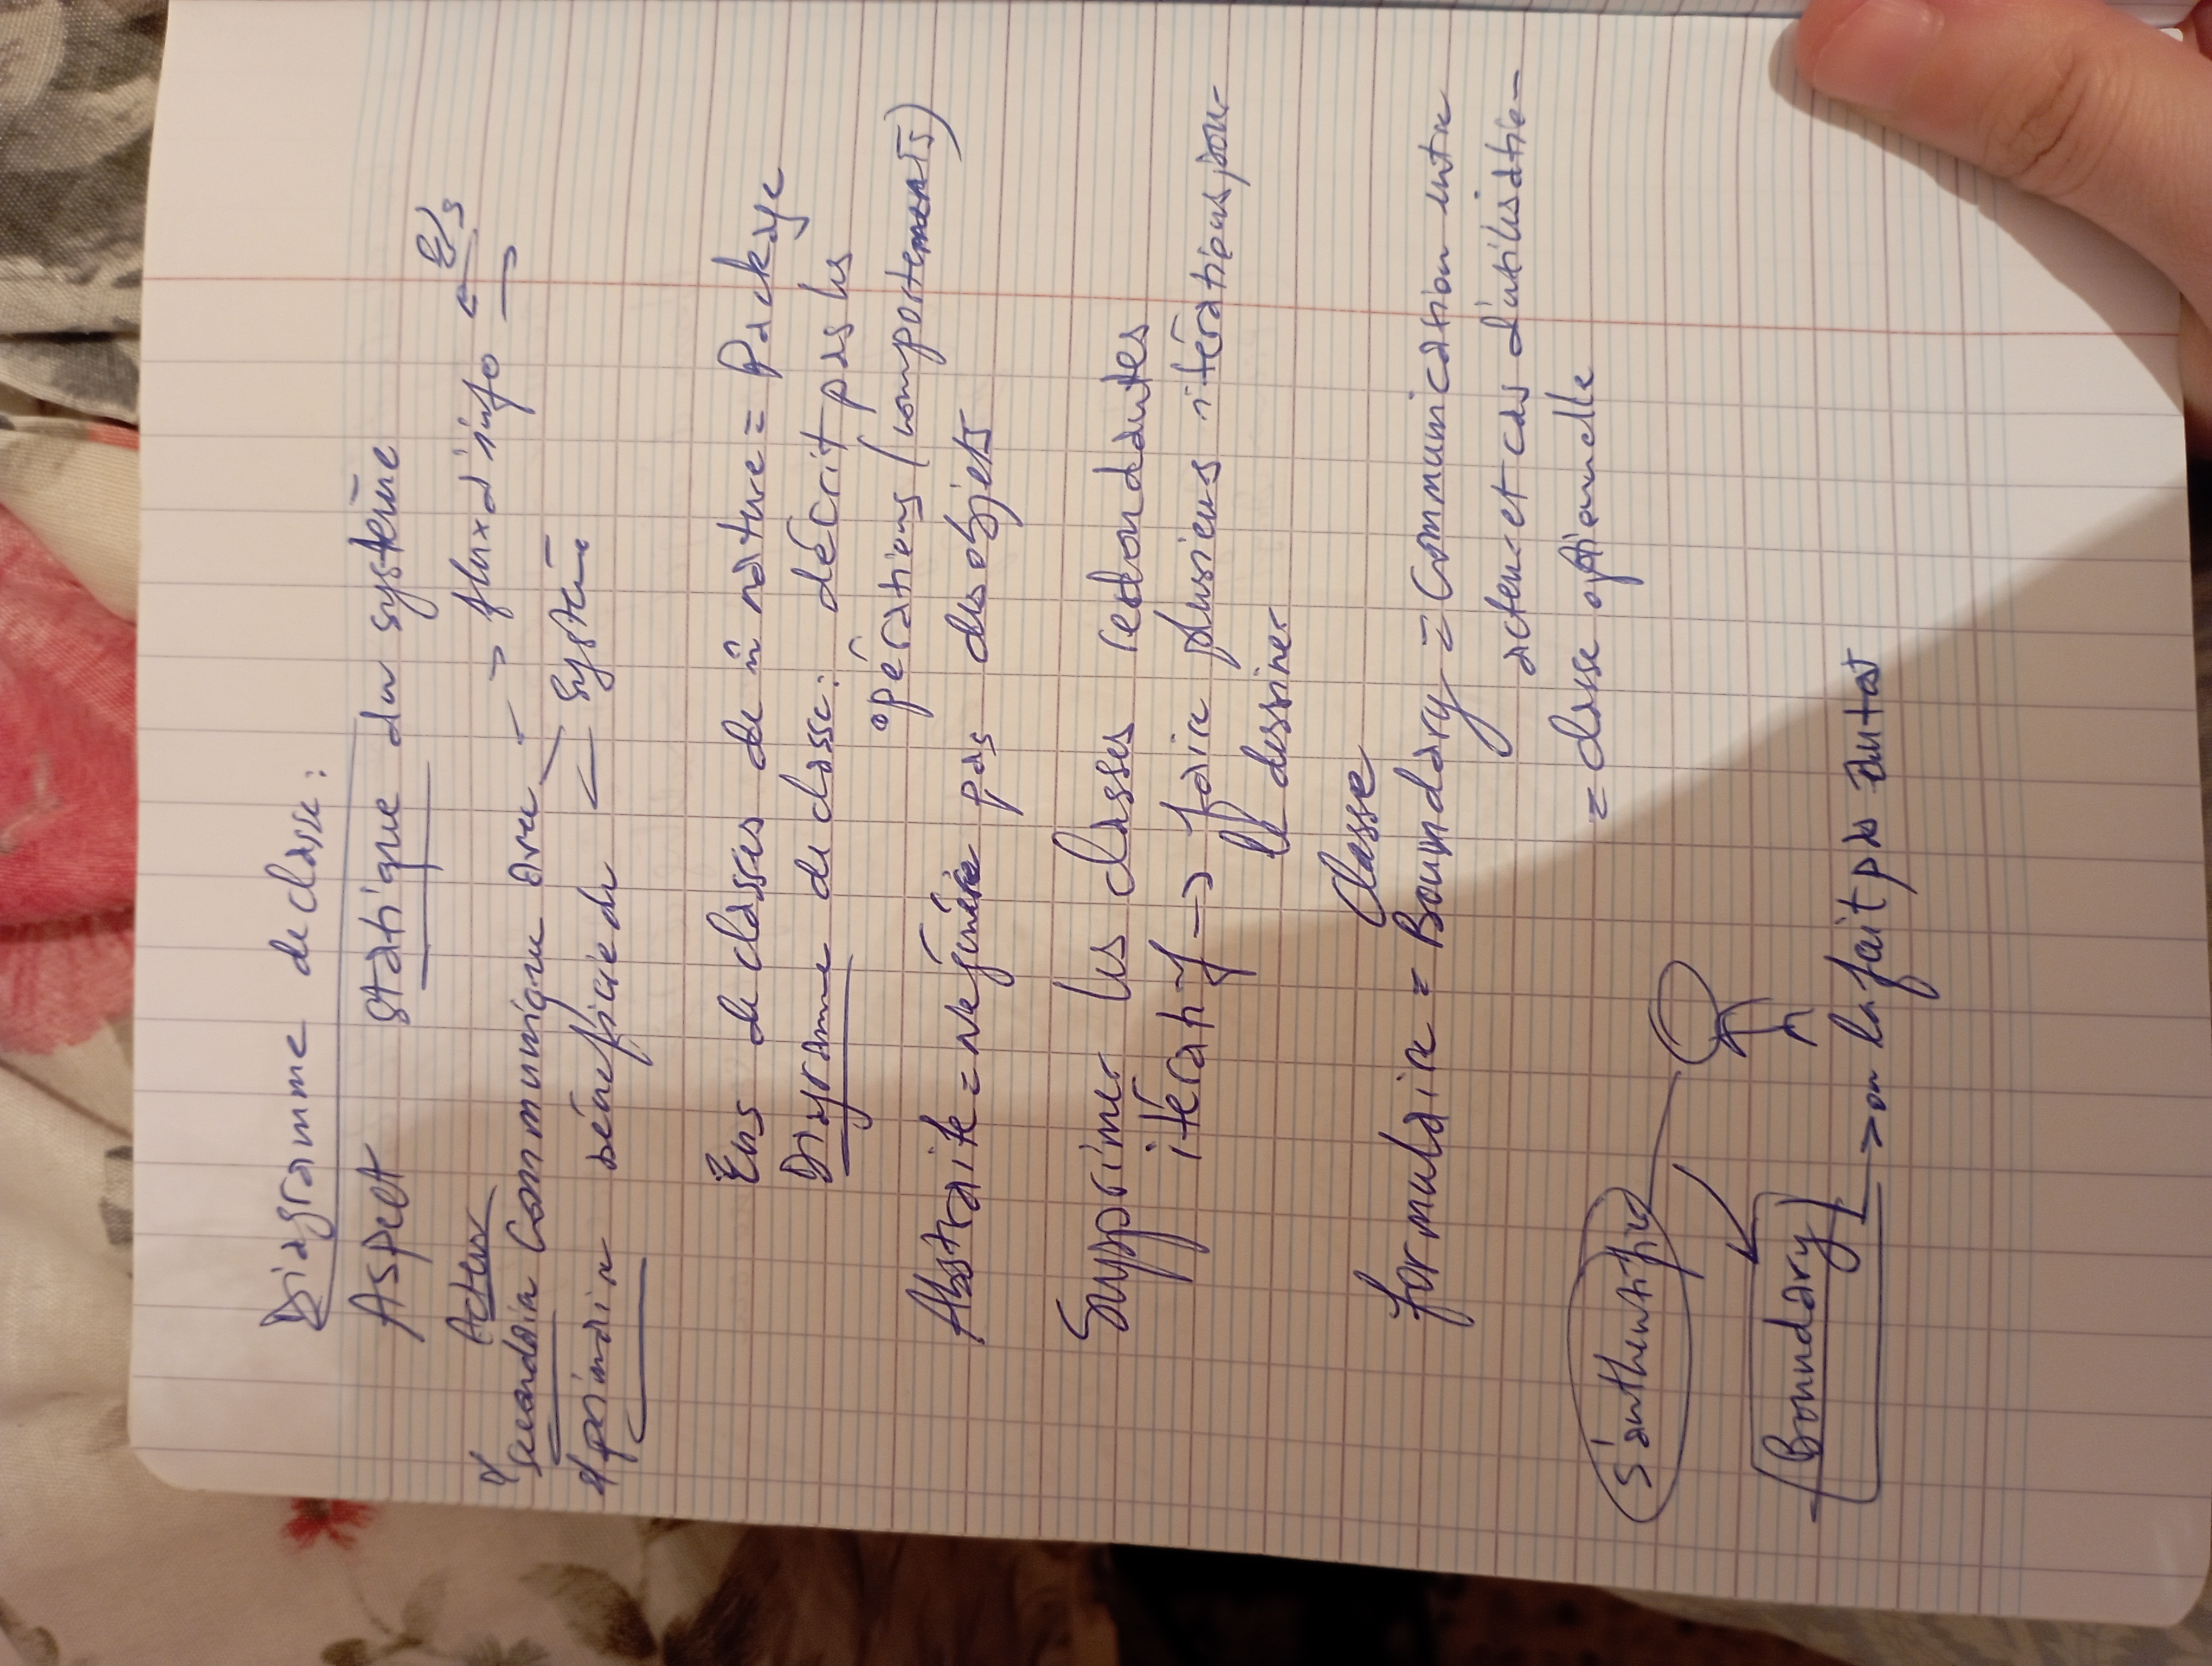 Diagramme de classe :
Aspect statique du système
Acteur → flux d'info E/S
≠ secondaire Communique avec
≠ primaire bénéficie du système
Ens de classes de m̂ nature = Package
Diagramme de classe : décrit pas les
opérations (comportements)
Abstraite = ne génère pas des objets
Supprimer les classes redondantes
itératif → faire plusieurs itérations pour
le dessiner
Classe
formulaire = Boundary = Communication entre
acteur et cas d'utilisation
= classe optionnelle
S'authentifier
Boundary
→ on le fait pas autot